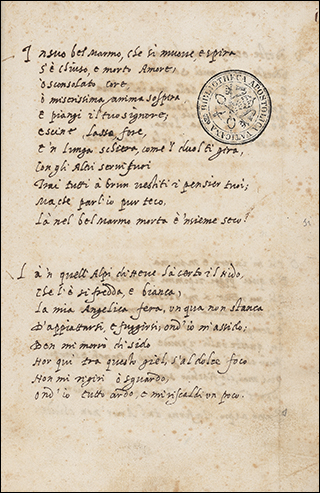 In suo bel Marmo, che si muove e spira
S'è chiuso, e morto Amore;
ò sconsolato core
ò miserissima anima sospira
e piangi il tuo signore,
esci ne lassa fore,
e'n lunga schiera, come 'l duol ti gira,
Con gli Altri servi fuori
Trai tutti à brun vestiti i pensier tuoi;
Ma che parl'io pur teco,
Là nel bel Marmo morta è 'nsieme seco?
BIBLIOTHECA APOSTOLICA VATICANA
Là 'n quell'Alpi di Neve hà certo il Nido,
Che l'è si fredda, e bianca,
La mia Angelica fera, un qua non stanca
D'appiattarsi, e fuggirsi, ond'io m'assido;
Ben mi morrò di sido
Hor qui tra questo giel, s'al dolce foco
Non mi rigiri ò sguardo,
Ond'io tutto ardo, e mi riscaldi un poco.